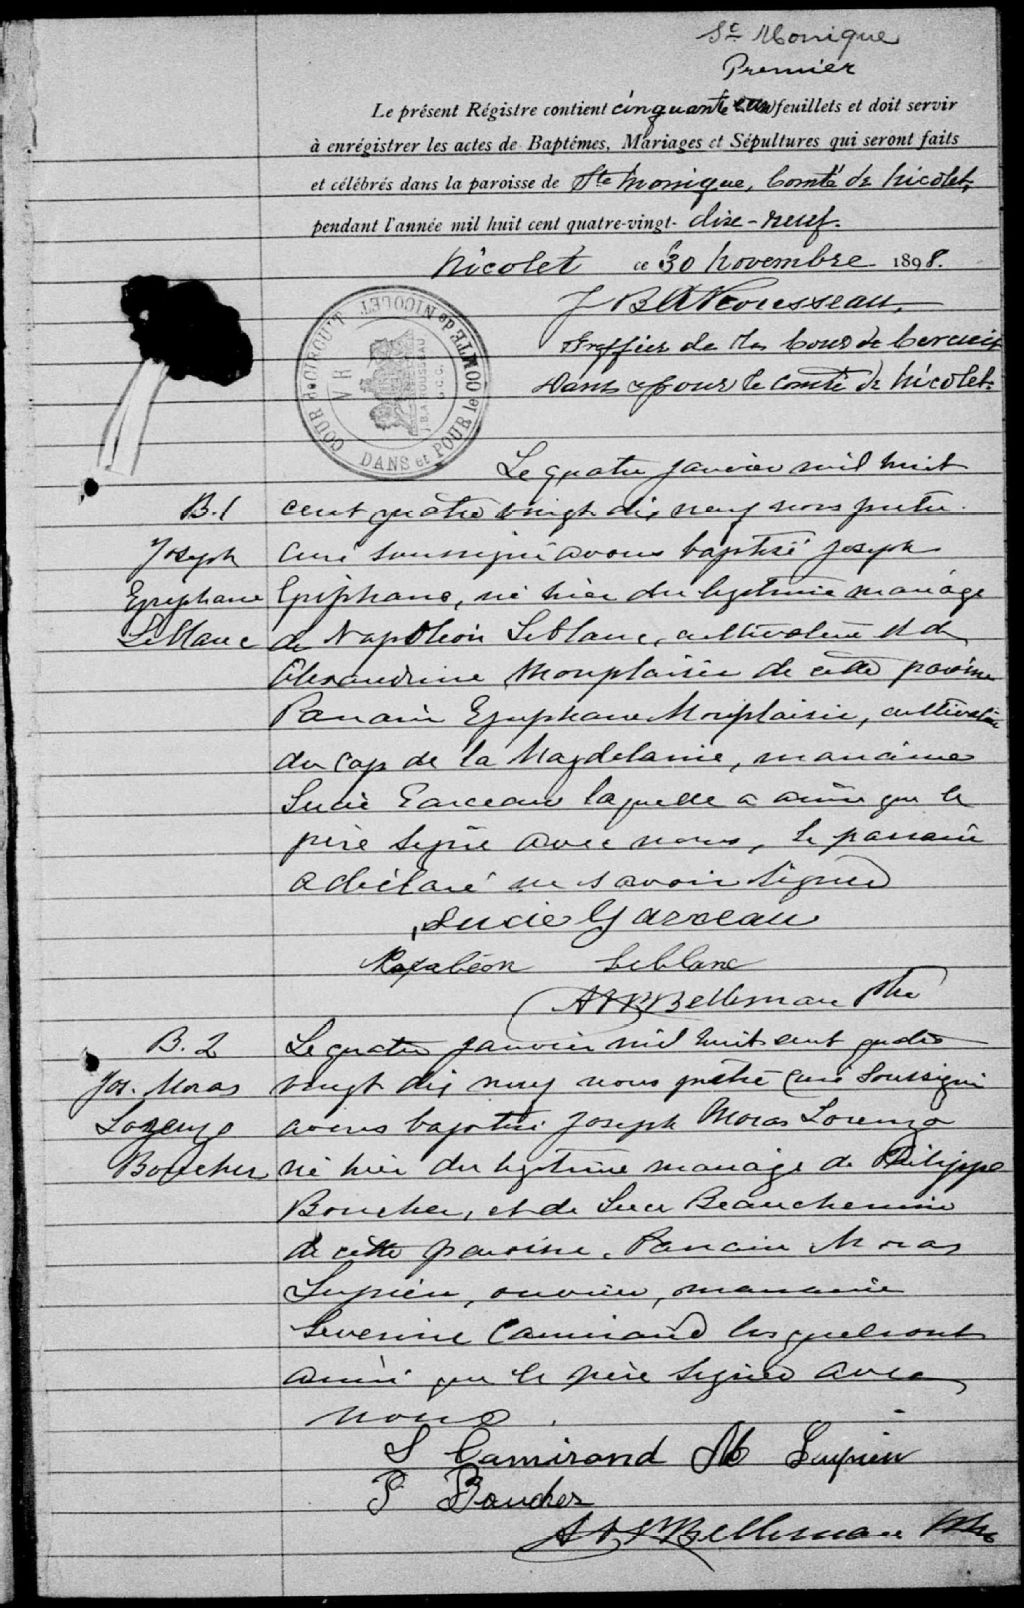 Ste Monique
Premier
Le présent Régistre contient cinquante feuillets et doit servir
à enrégistrer les actes de Baptêmes, Mariages et Sépultures qui seront faits
et célébrés dans la paroisse de Ste Monique, Comté de Nicolet,
pendant l'année mil huit cent quatre-vingt- dix-neuf.
Nicolet ce 30 Novembre 1898.
Greffier de la Cour de Circuit
Dans et pour le Comté de Nicolet.
COUR de CIRCUIT
DANS et POUR le COMTÉ de NICOLET
V R
Le quatre janvier mil huit
B.1 cent quatre vingt dix neuf nous prêtre
Joseph curé soussigné avons baptisé Joseph
Epiphane Epiphane, né hier du legitime mariage
Leblanc de Napoléon Leblanc, cultivateur et de
Alexandrine Monplaisir de cette paroisse
Parrain Epiphane Monplaisir, cultivateur
du Cap de la Magdelaine, marraine
Lucie Garceau laquelle a ainsi que le
père signé avec nous, le parrain
a déclaré ne savoir signer
Lucie Garceau
Napoléon Leblanc
Bellemare Ptre
B. 2 Le quatre janvier mil huit cent quatre
Jos. Moras vingt dix neuf nous prêtre curé soussigné
Lorenzo avons baptisé Joseph Moras Lorenzo
Boucher né hier du legitime mariage de Philippe
Boucher, et de Luce Beauchemin
de cette paroisse. Parrain Moras
Lupien, ouvrier, marraine
Severine Camirand lesquels ont
ainsi que le père signé avec
nous.
S Camirand M Lupien
P Boucher
Bellemare Ptre